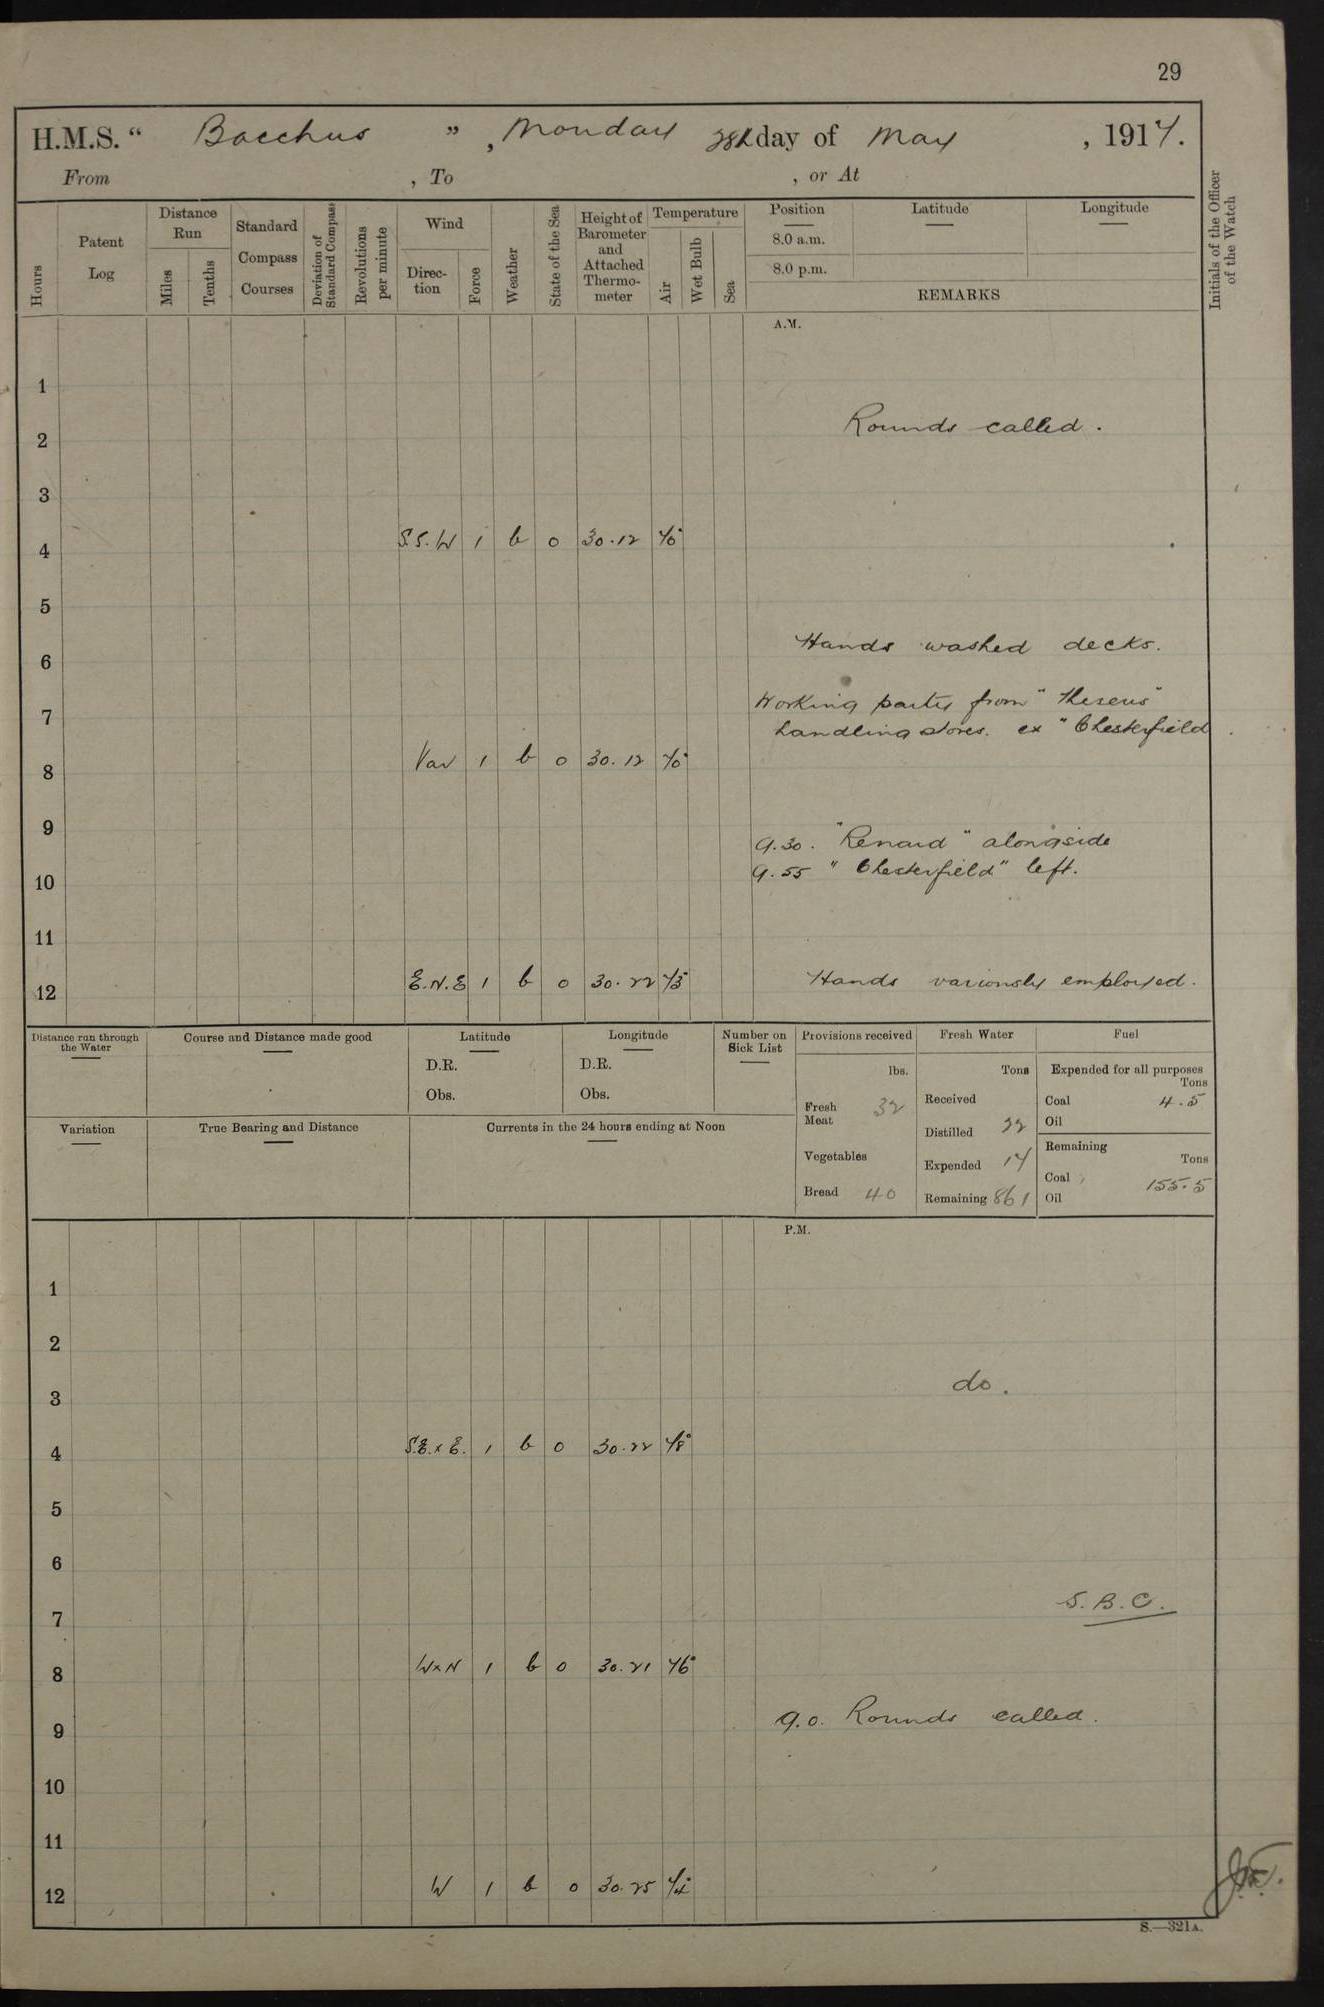 29
H.M.S. " Bacchus ", Monday 28th day of May, 1917.
From , To , or At
Hours
Patent Log
Distance Run
Miles
Tenths
Standard Compass Courses
Deviation of Standard Compass
Revolutions per minute
Wind
Direction
Force
Weather
State of the Sea
Height of Barometer and Attached Thermometer
Temperature
Air
Wet Bulb
Sea
Position
8.0 a.m.
8.0 p.m.
Latitude
Longitude
REMARKS
Initials of the Officer of the Watch
A.M.
1
2 Rounds called.
3
4 S.S.W 1 b 0 30.12
5
6 Hands washed decks.
7 Working party from "Theseus"
handling stores. ex "Chesterfield
8 Var 1 b 0 30.12
9
9.30. "Renard" alongside
10 9.55 "Chesterfield" left.
11
12 E.N.E 1 b 0 30.22 Hands variously employed.
Distance run through the Water
Course and Distance made good
Latitude
D.R.
Obs.
Longitude
D.R.
Obs.
Number on Sick List
Provisions received
lbs.
Fresh Meat 32
Vegetables
Bread 40
Fresh Water
Tons
Received
Distilled 22
Expended 14
Remaining 861
Fuel
Expended for all purposes
Tons
Coal 4.5
Oil
Remaining
Tons
Coal 155.5
Oil
Variation
True Bearing and Distance
Currents in the 24 hours ending at Noon
P.M.
1
2
3 do.
4 S.E.x E. 1 b 0 30.22
5
6
7 S.B.C.
8 WxN 1 b 0 30.21 46°
9 9.0. Rounds called.
10
11
12 W 1 b 0 30.25
S.—321A.